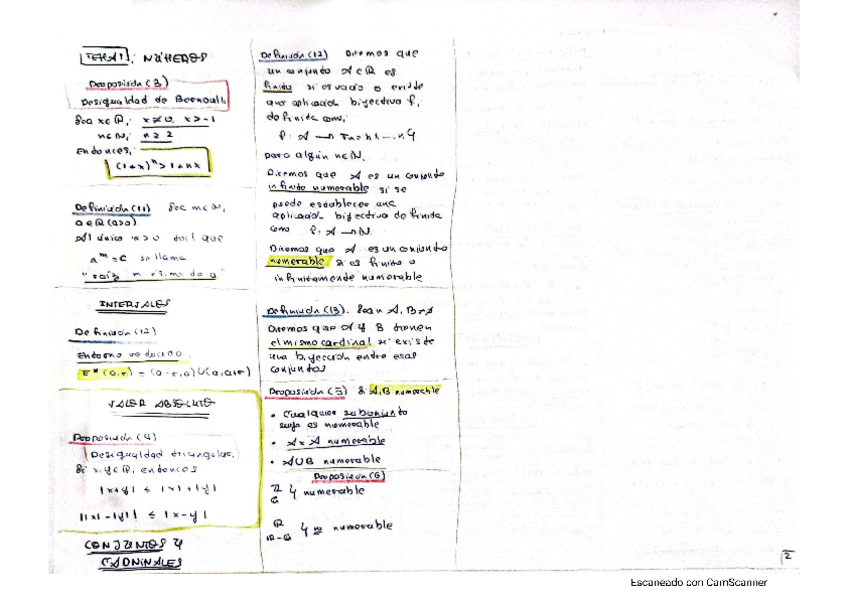 TEMA 1: NÚMEROS
Proposición (3)
Desigualdad de Bernoulli
Sea x∈R, x≠0, x>-1
n∈N, n≥2
Entonces,
(1+x)^n > 1+nx
Definición (11) Sea m∈N,
a∈R (a>0)
Al único x>0 tal que
se llama
"raíz m-ésima de a"
INTERVALOS
Definición (12)
Entorno reducido
E*(a,r) = (a-r,a)∪(a,a+r)
VALOR ABSOLUTO
Proposición (4)
Desigualdad triangular.
Si x,y∈R, entonces
|x+y| ≤ |x|+|y|
||x|-|y|| ≤ |x-y|
CONJUNTOS Y
CARDINALES
Definición (12) Diremos que
un conjunto A⊂R es
finito si es vacío o existe
una aplicación biyectiva f,
definida como,
para algún n∈N.
Diremos que A es un conjunto
infinito numerable si se
puede establecer una
aplicación biyectiva definida
como f: A → N.
Diremos que A es un conjunto
numerable si es finito o
infinitamente numerable
Definición (13). Sean A, B≠∅
Diremos que A y B tienen
el mismo cardinal si existe
una biyección entre esos
conjuntos
Proposición (5) Si A,B numerable
• Cualquier subconjunto
suyo es numerable
• A×A numerable
• A∪B numerable
Proposición (6)
Z
Q } numerable
R
R-Q } no numerable
2
Escaneado con CamScanner